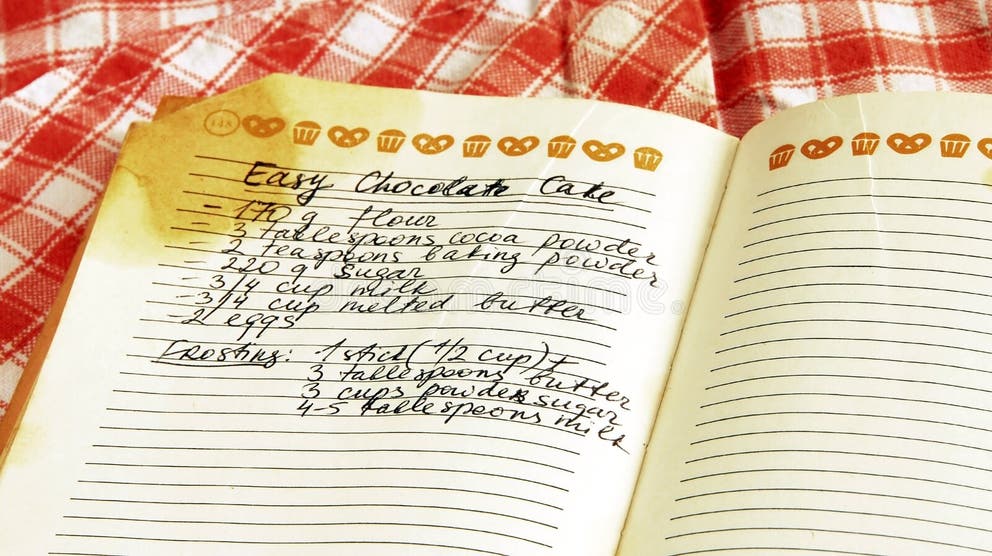 148
Easy Chocolate Cake
- 170 g flour
- 3 tablespoons cocoa powder
- 2 teaspoons baking powder
- 220 g sugar
- 3/4 cup milk
- 3/4 cup melted butter
- 2 eggs
Frosting: 1 stick (1/2 cup) +
3 tablespoons butter
3 cups powder sugar
4-5 tablespoons milk
dreamstime